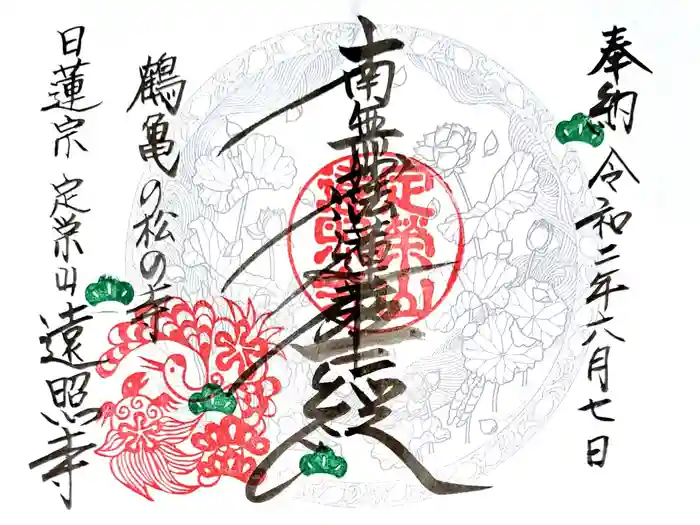 奉納 令和二年六月七日
南無妙法蓮華経
定榮山
遠照寺
鶴亀の松の寺
日蓮宗 定栄山 遠照寺